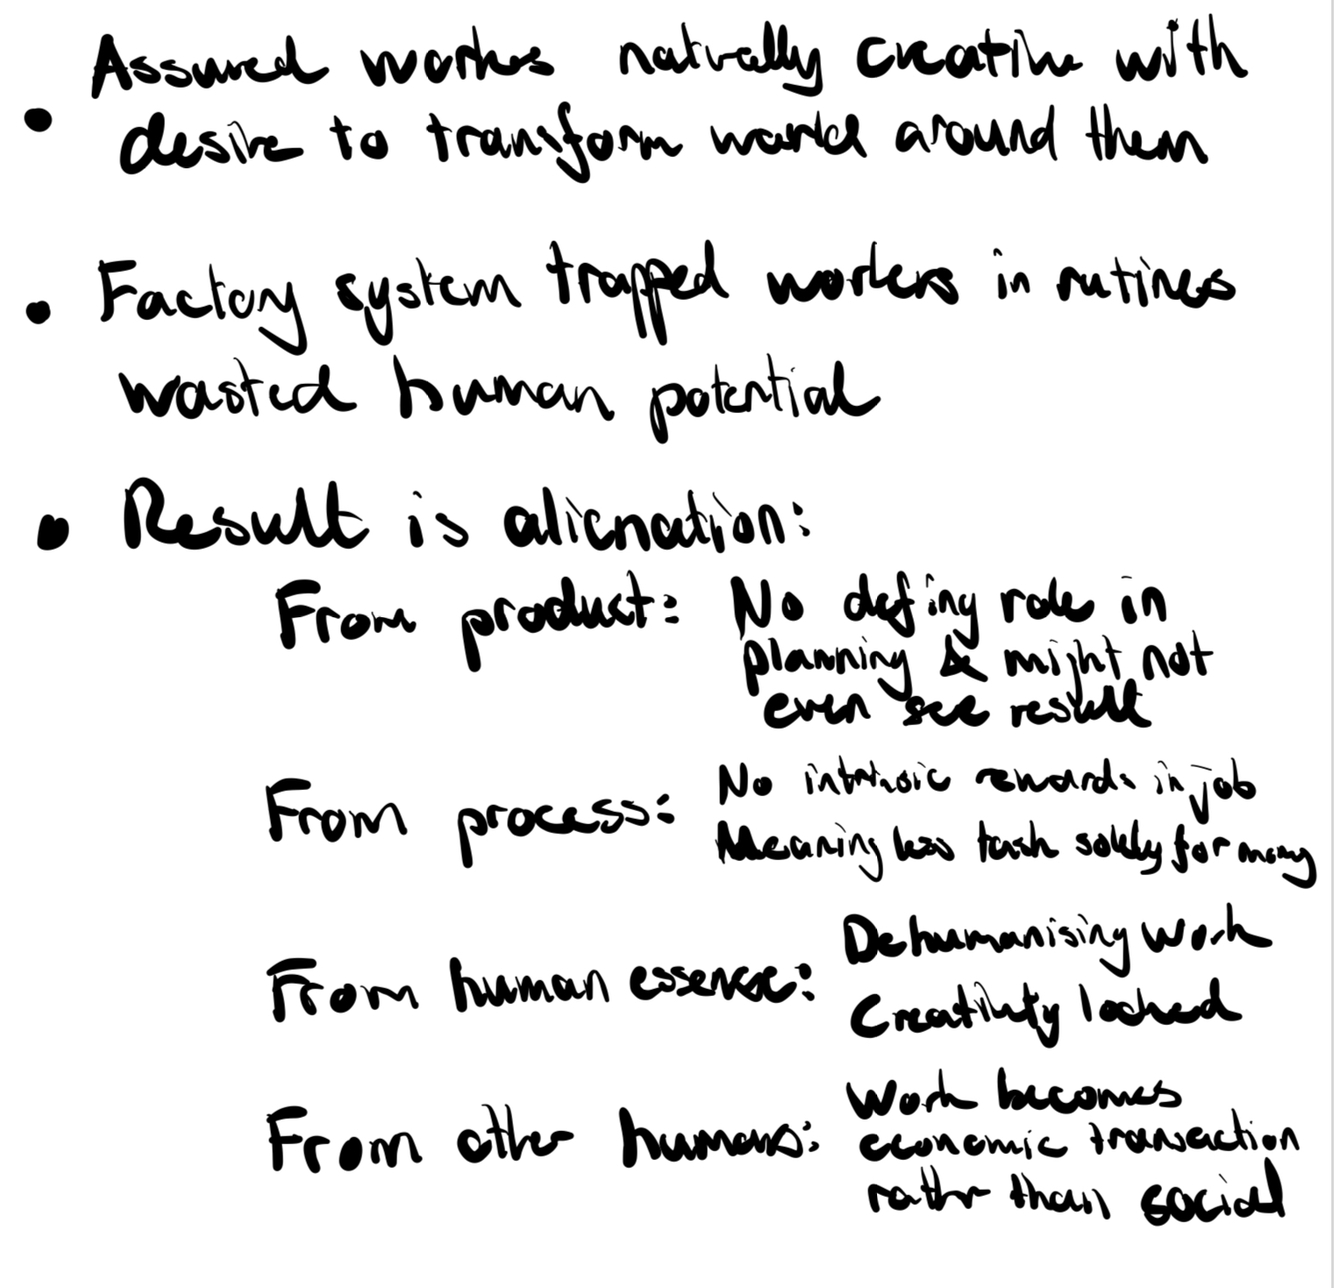 Assumed workers naturally creative with
• desire to transform world around them
• Factory system trapped workers in rutines
wasted human potential
• Result is alienation:
From product: No defing role in
planning & might not
even see result
From process: No intrinsic rewards in job
Meaningless task solely for money
From human essence: Dehumanising work
Creativity locked
From other humans: Work becomes
economic transaction
rather than social